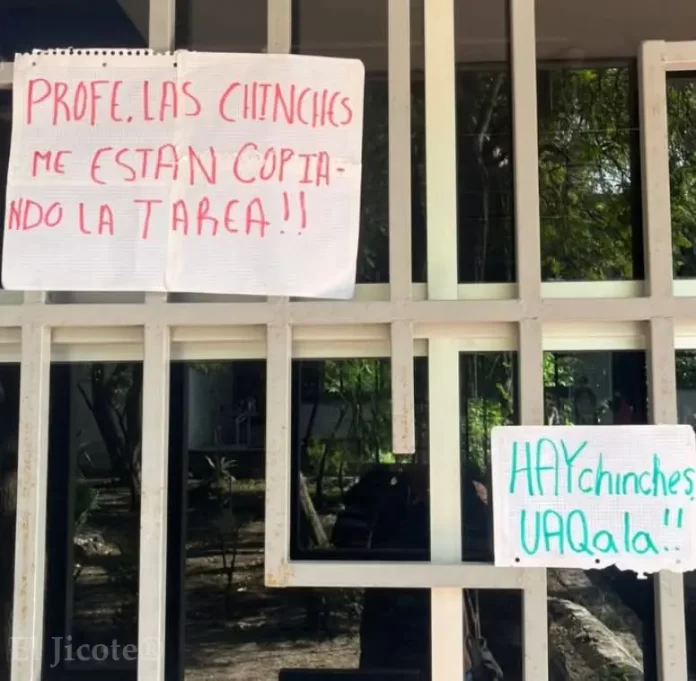 PROFE. LAS CHINCHES
ME ESTÁN COPIA-
NDO LA TAREA!!
HAY chinches,
UAQala!!
El Jicote®